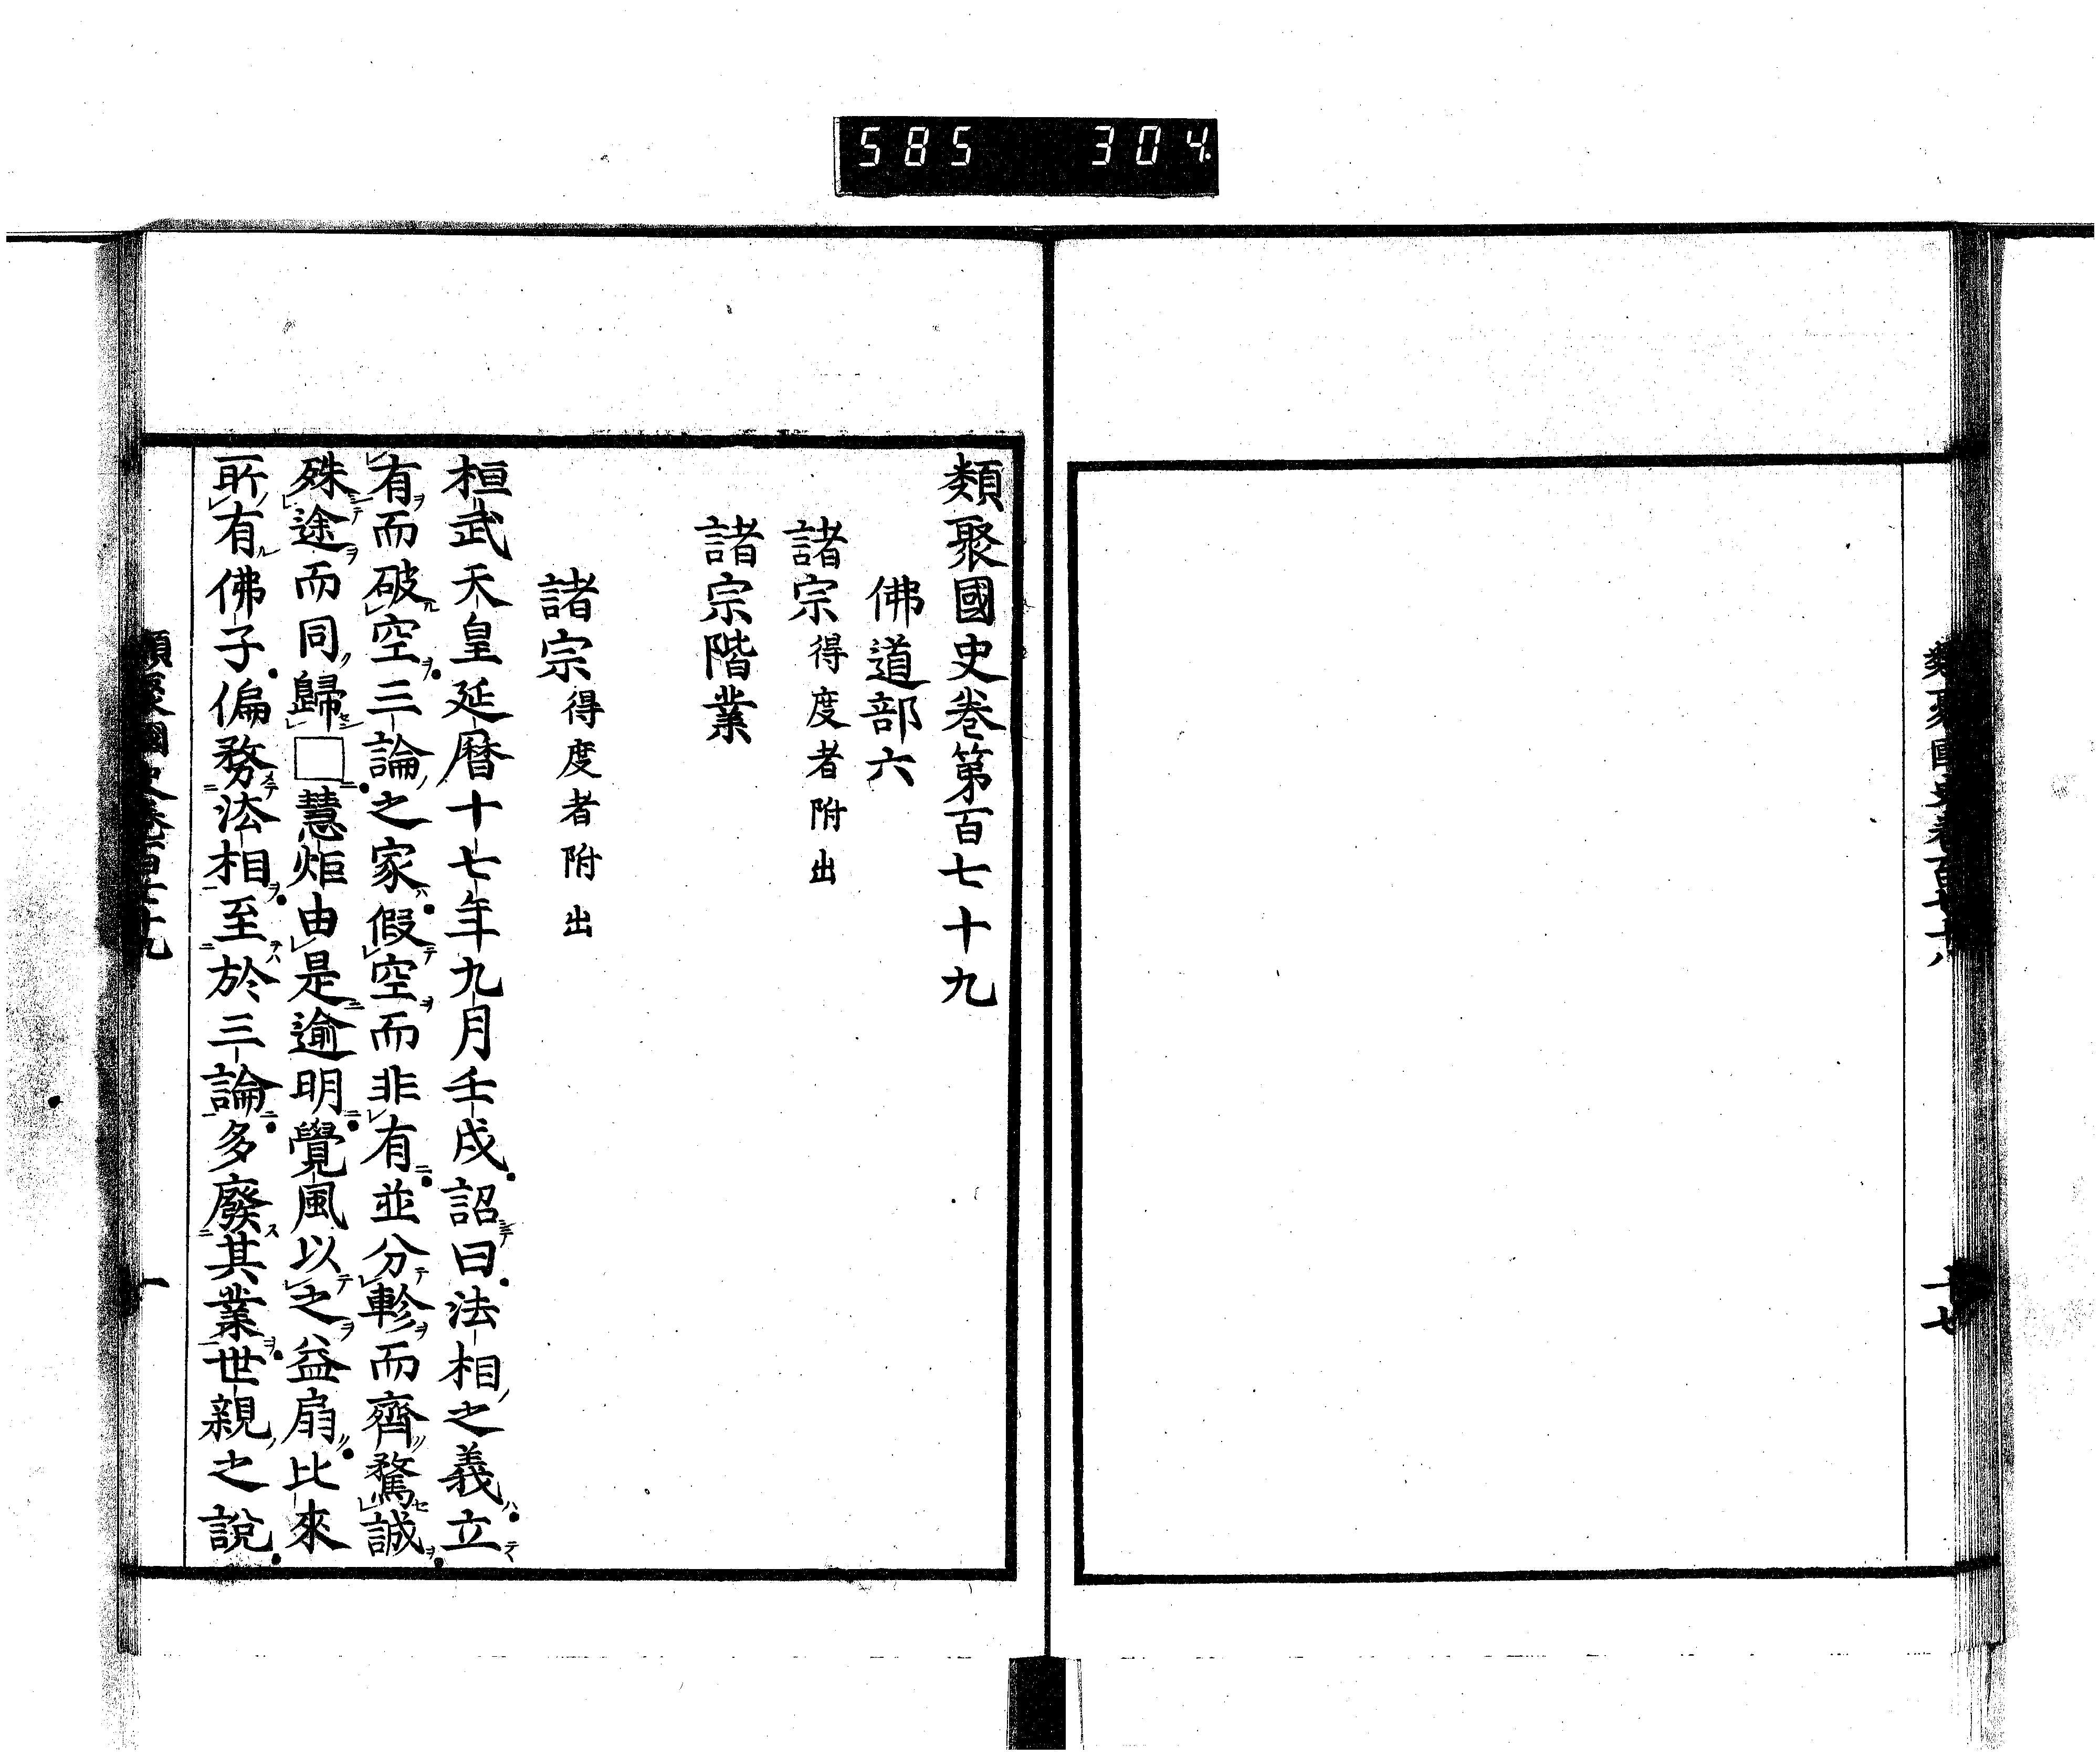 585 304
類聚國史卷百七十八
十七
類聚國史卷第百七十九
佛道部六
諸宗得度者附出
諸宗階業
諸宗得度者附出
桓武天皇延曆十七年九月壬戌詔曰法相之義立
有而破空三論之家假空而非有並分軫而齊騖誠
殊途而同歸□慧炬由是逾明覺風以之益扇比來
所有佛子偏務法相至於三論多廢其業世親之說
類聚國史卷百七十九
一